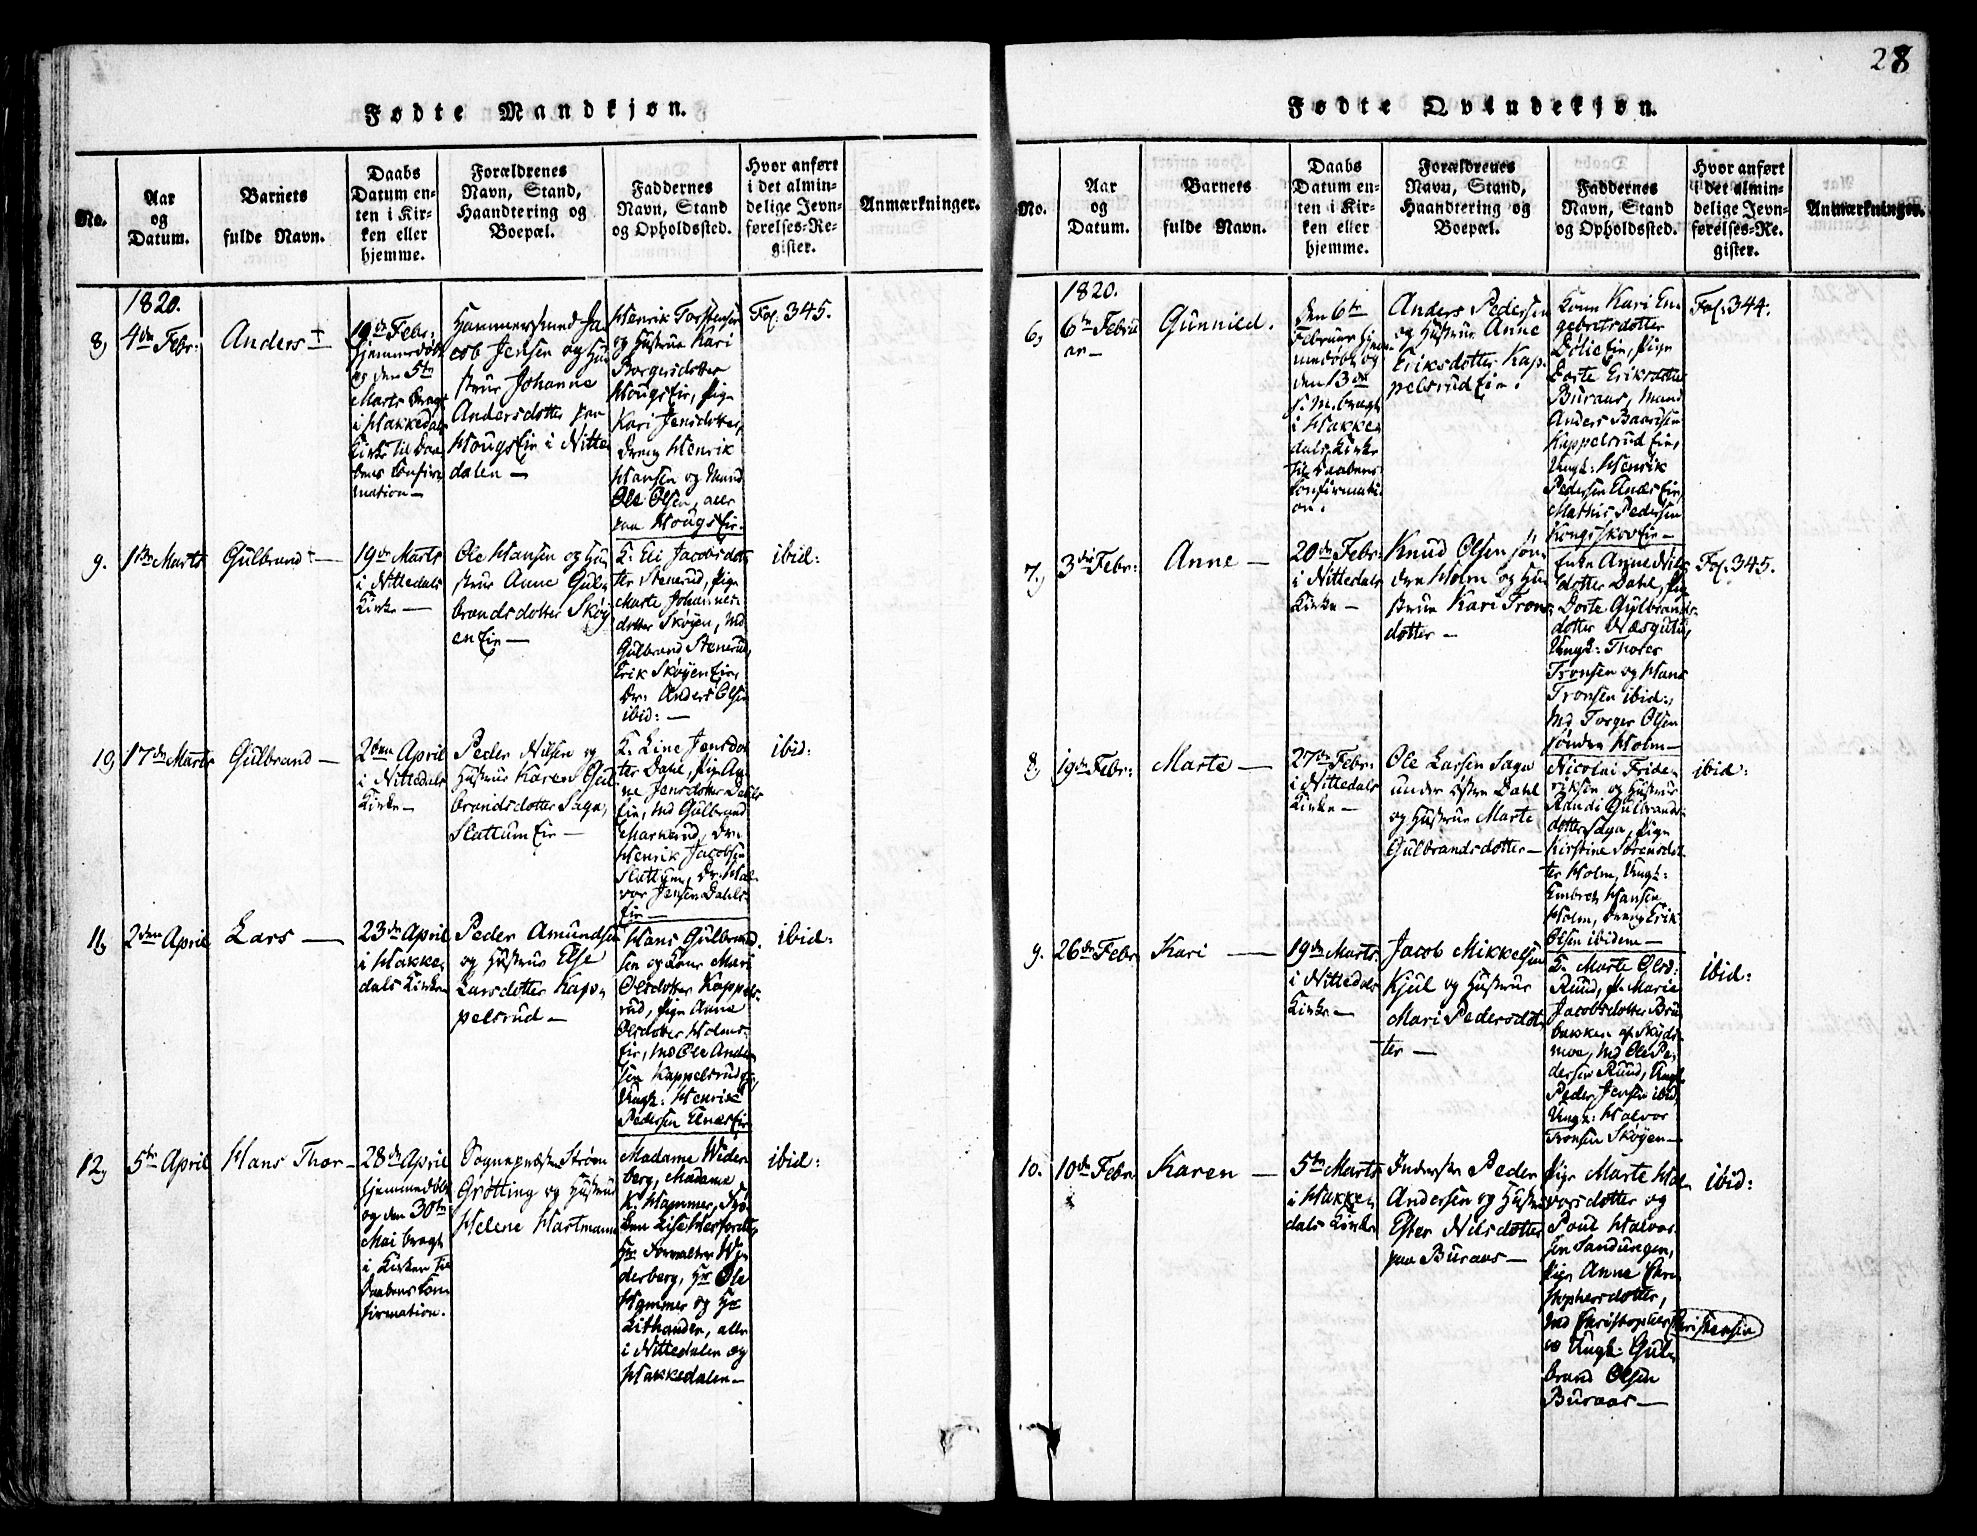 28
Fødte Mandkjøn.
No.
Aar
og
Datum.
Barnets
fulde Navn.
Daabs
Datum en-
ten i Kir-
ken eller
hjemme.
Forældrenes
Navn, Stand,
Haandtering og
Boepæl.
Faddernes
Navn, Stand
og Opholdssted.
Hvor anført
i det almin-
delige Jevn-
førelses-Re-
gister.
Anmærkninger.
1820.
8,
4de Febr:
Anders †
19de Febr:
hjemmedøbt
og den 5te
Marts bragt
i Hakkedals
Kirke til Daa-
bens Confir-
mation —
Hammersmed Ja-
cob Jensen og Hu-
strue Johanne
Andersdotter paa
Hougs Eie i Nitte-
dalen —
Henrik Torstensen
og Hustrue Kari
Borgersdotter
Hougs Eie, Pige
Kari Jensdotter,
Dreng Henrik
Hansen og Mand
Ole Olsen, alle
paa Hougs Eie.
Fol. 345.
9.
1ste Marts
Gulbrand † —
19de Marts
i Nittedals
Kirke —
Ole Hansen og Hu-
strue Anne Gul-
brandsdotter Skøy-
en Eie —
K. Eli Jacobsdot-
ter Stenerud, Pige
Marte Johannes-
dotter Skøyen, Md
Gulbrand Stenerud,
Erik Skøyen Eie,
Dr. Anders Olsen
ibid: —
ibid:
10,
17de Marts
Gulbrand —
2den April
i Nittedals
Kirke —
Peder Nilsen og
Hustrue Karen Gul-
brandsdotter Saga,
Slattum Eie —
K. Line Jensdot-
ter Dahl, Pige An-
ne Jensdotter Dahls
Eie, Md Gulbrand
Markerud, Dr:
Henrik Jacobsen
Slattum, Dr: Hal-
vor Jensen Dahls-
Eie —
ibid:
11,
2den April
Lars —
23de April
i Hakke-
dals Kirke
Peder Amundsen
og Hustrue Else
Larsdotter Kap-
pelsrud —
Hans Gulbrand-
sen og Kone Mari
Olsdotter Kappels-
rud, Pige Anne
Olsdotter Holms-
Eie, Md Ole Ander-
sen Kappelsrud
Ungk: Henrik
Pedersen Elnæs Eie
ibid:
12,
5te April
Hans Thor —
28de April
hjemmedøbt
og den 30te
Mai bragt
i Kirken til
Daabens Con-
firmation.
Sognepræsten Strøm
Grøtting og Hustrue
Helene Hartmann
Madame Wider-
berg, Madame
K. Hammer,
Lise Herfordt,
Hr Forvalter Wi-
derberg, Hr Ole
Hammer og Hr
Lithander, alle
i Nittedalen og
Hakkedalen —
ibid:
Fødte Qvindekjøn.
No.
Aar
og
Datum.
Barnets
fulde Navn.
Daabs
Datum en-
ten i Kir-
ken eller
hjemme.
Forældrenes
Navn, Stand,
Haandtering og
Boepæl.
Faddernes
Navn, Stand
og Opholdssted.
Hvor anført
i det almin-
delige Jevn-
førelses-Re-
gister.
Anmærkninger.
1820.
6,
6te Febru-
ar —
Gunnild.
den 6te
Februar hjem-
medøbt og
den 13de
s. M. bragt
i Hakke-
dals Kirke
til Daabens
Confirmati-
on.
Anders Pedersen
og Hustrue Anne
Eriksdotter Kap-
pelsrud Eie.
Kone Kari En-
gebretsdotter
Dølie Eie, Pige
Dorte Eriksdotter
Buraas, Mand
Anders Baardsen
Kappelsrud Eie,
Ungk: Henrik
Pedersen Elnæs Eie,
Mathis Pedersen
Kongsskov Eie —
Fol. 344.
7,
3die Febr:
Anne —
20de Febr:
i Nittedals
Kirke —
Knud Olsen søn-
dre Holm og Hu-
strue Kari Trons-
dotter —
Enke Anne Nils-
dotter Dahl, Pige
Dorte Gulbrands-
dotter
Ungk: Thores
Tronsen og Hans
Tronsen ibid:,
Md Torger Olsen
søndre Holm —
Fol. 345.
8,
19de Febr:
Marte —
27de Febr:
i Nittedals
Kirke —
Ole Larsen Saga
under østre Dahl
og Hustrue Marte
Gulbrandsdotter —
Nicolai Fride-
riksen og Hustrue
Randi Gulbrands-
dotter Saga, Pige
Kirstine Sørensdot-
ter Holm, Ungk:
Embret Hansen
Holm, Dreng Erik
Olsen ibidem —
ibid:
9.
26de Febr.
Kari —
19de Marts
i Nittedals
Kirke —
Jacob Mikkelsen
Kjul og Hustrue
Mari Pedersdot-
ter —
K. Marte Olsd:
Ruud, P. Marie
Jacobsdotter Bru-
bakken af Skyds-
moe, Md Ole Pe-
dersen Ruud, Ungk.
Peder Jensen ibid,
Ungk: Halvor
Tronsen Skøyen —
ibid:
10.
10de Febr.
Karen —
5te Marts
i Hakke-
dals Kirke
Inderster Peder
Andersen og Hustrue
Ester Nilsdotter
paa Buraas —
Pige Marte Hal-
vorsdotter og
Poul Halvor-
sen Sandungen,
Pige Anne Chri-
stophersdotter,
Md Christopher Christensen
og Ungk: Gul-
brand Olsen
Buraas —
ibid: